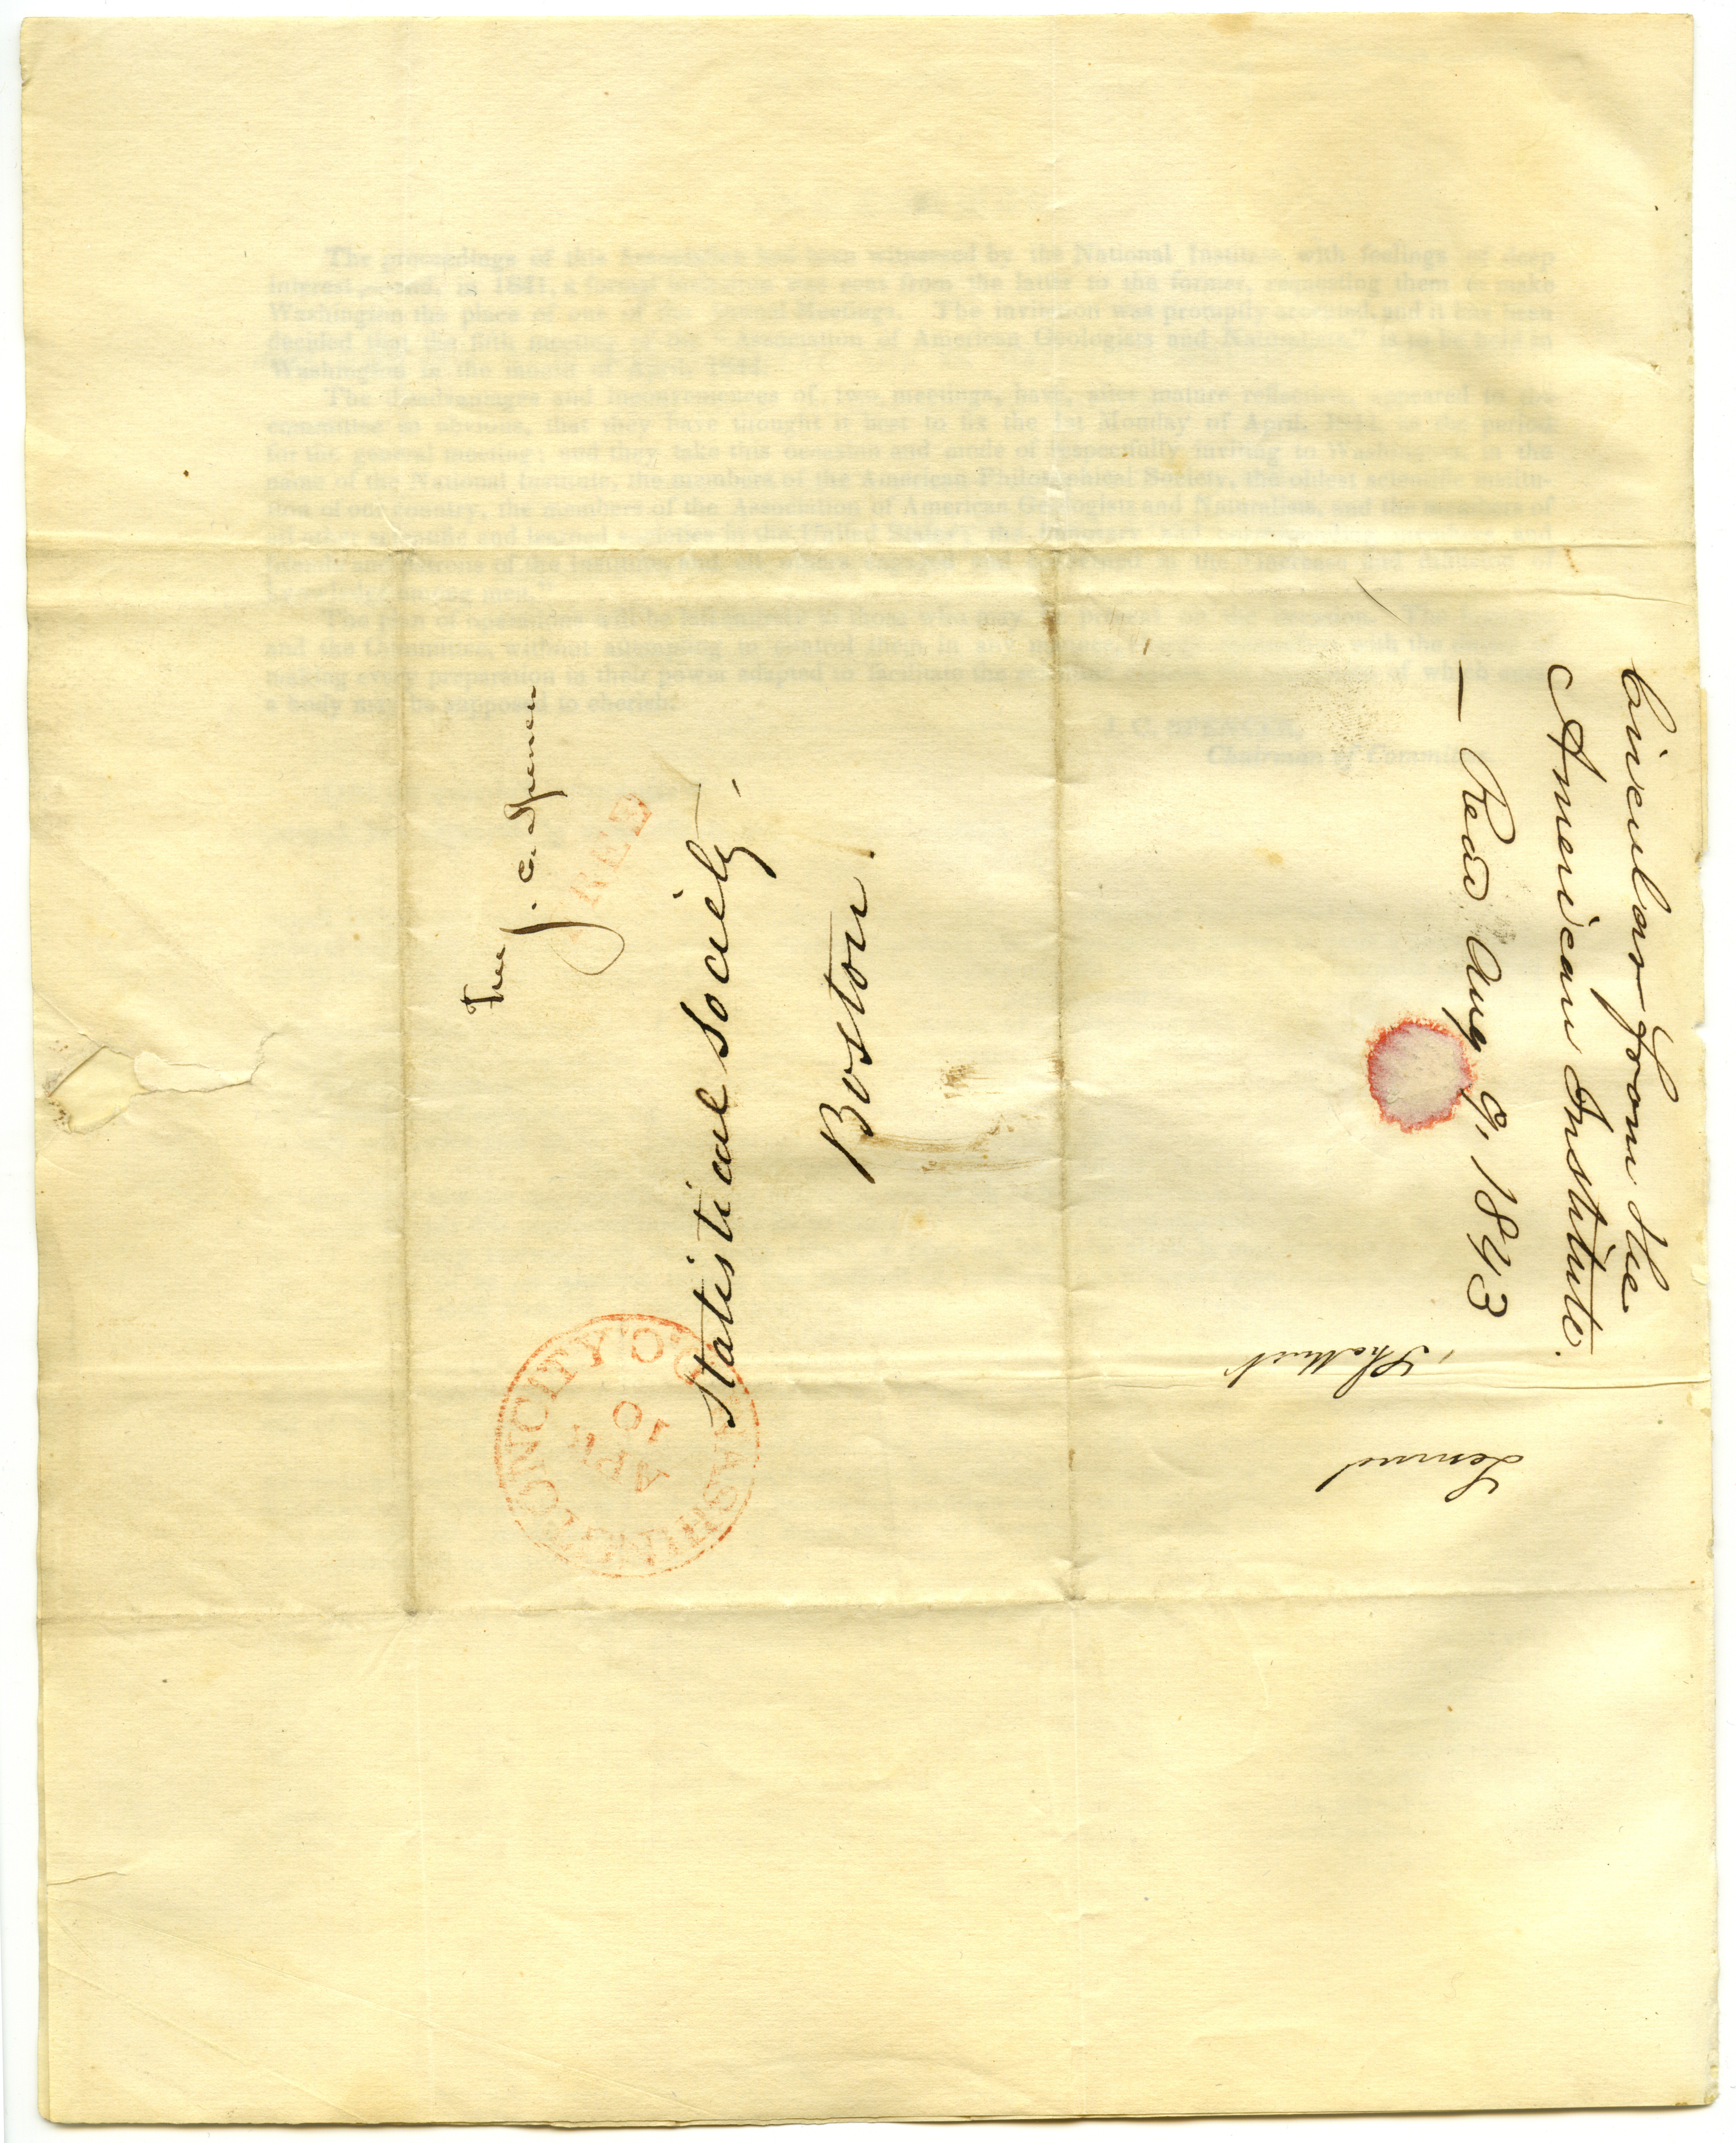 Free
J. C. Spencer
FREE
Statistical Society,
Boston.
WASHINGTON CITY D.C.
APR
10
Circular from the
American Institute.
— Read Aug 9, 1843
Lemuel
Shattuck
The proceedings of this Association have been witnessed by the National Institute with feelings of deep
interest, and, in 1841, a formal invitation was sent from the latter to the former, requesting them to make
Washington the place of one of the Annual Meetings. The invitation was promptly accepted, and it has been
decided that the fifth meeting of the "Association of American Geologists and Naturalists" is to be held in
Washington in the month of April, 1844.
The disadvantages and inconveniences of two meetings, have, after mature reflection, appeared to the
committee so obvious, that they have thought it best to fix the 1st Monday of April, 1844, as the period
for the general meeting; and they take this occasion and mode of respectfully inviting to Washington, in the
name of the National Institute, the members of the American Philosophical Society, the oldest scientific institu-
tion of our country, the members of the Association of American Geologists and Naturalists, and the members of
all other scientific and learned societies in the United States; the honorary and corresponding members and
friends and patrons of the Institute, and all others engaged and interested in the "increase and diffusion of
knowledge among men."
and the Committee, without attempting to control them in any
making every preparation in their power adapted to facilitate the of which such
a body may be supposed to cherish.
J. C. SPENCER,
Chairman of Committee